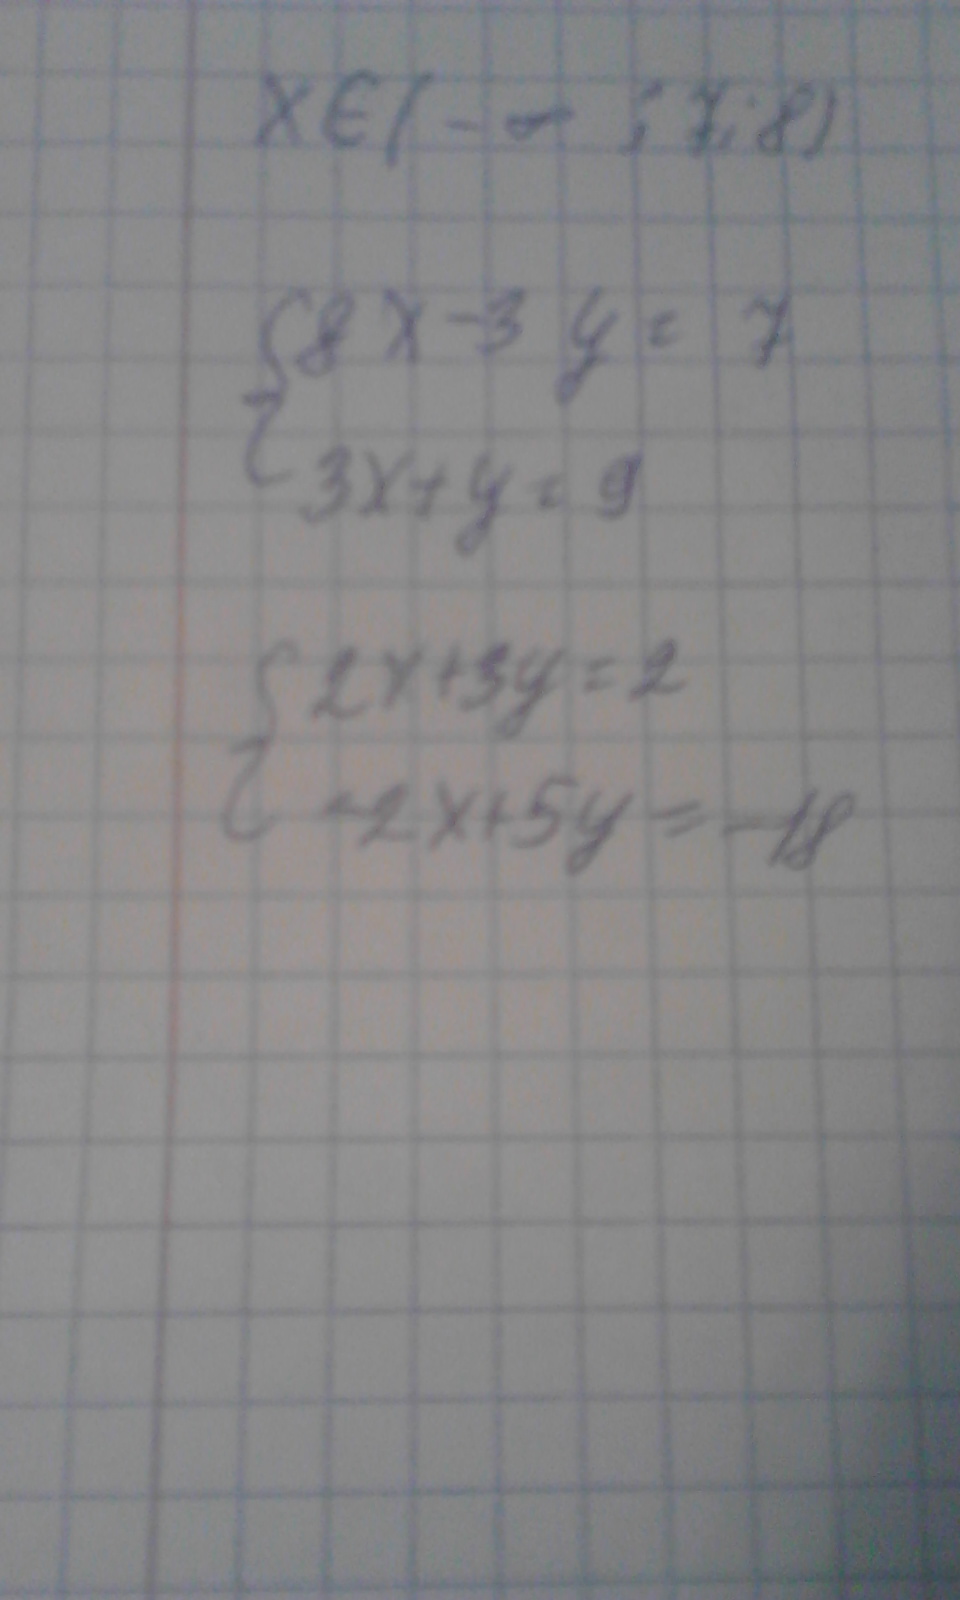 x∈(-∞ ; 7,8)
{8x-3y=7
3x+y=9
{2x+3y=2
-2x+5y=-18